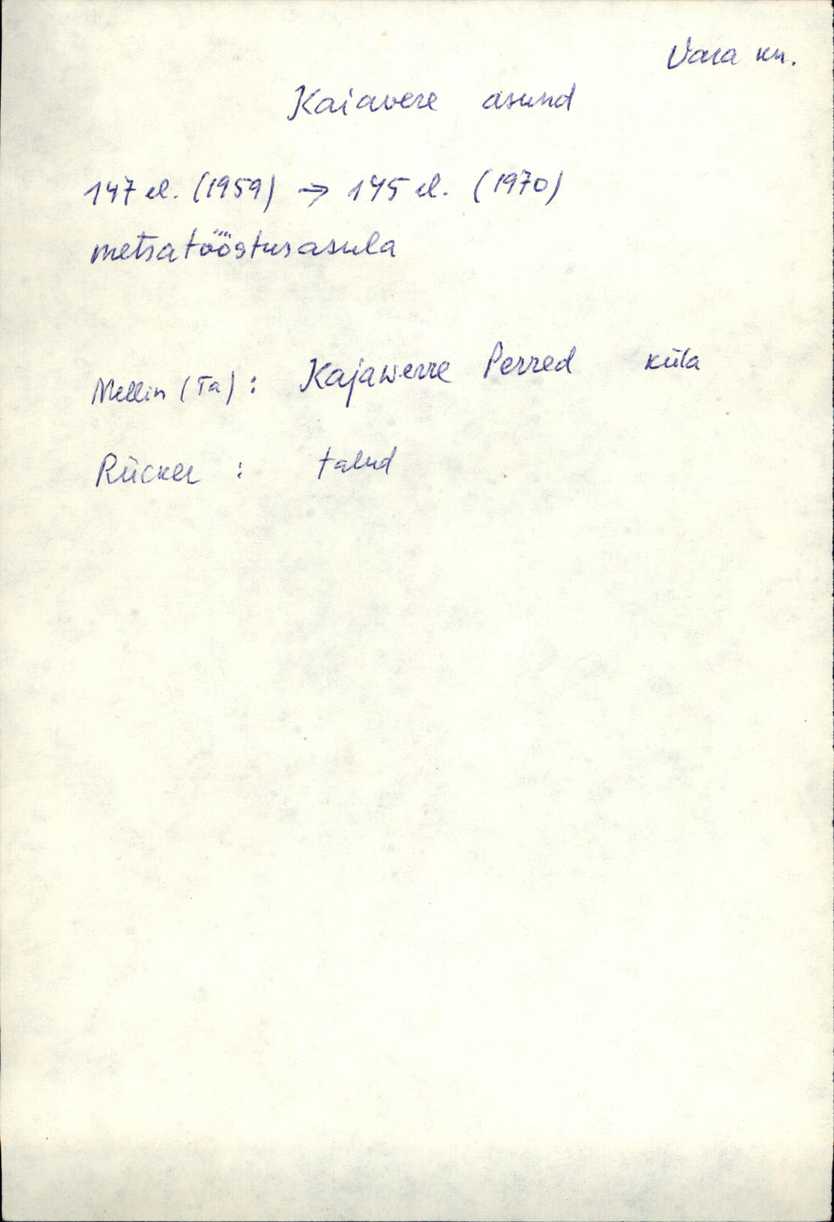 Vara kn.
Kaiavere asund
147 el. (1959) → 145 el. (1970)
metsatööstusasula
Mellin (Ta): Kajawerre Perred küla
Rücker: talud